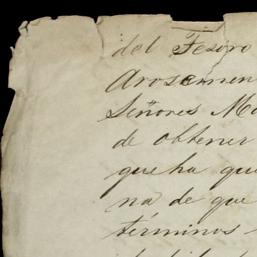 del Tesoro
Arosemen
Señores Ma
de obtener
que ha que
na de que
términos